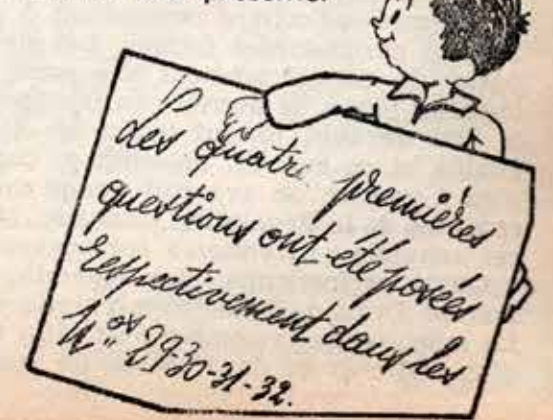 Les quatre premières
questions ont été posées
respectivement dans les
Nos 29-30-31-32.